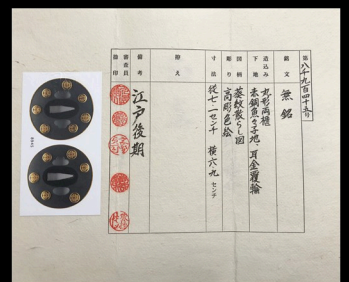 第八千九百四十五号
銘文 無銘
造込み 丸形両櫃
下地 赤銅魚々子地、耳金覆輪
図柄 葵紋散らし図
彫り 高彫色絵
寸法 縦七・一センチ 横六・九センチ
控え
備考 江戸後期
審査員
改印